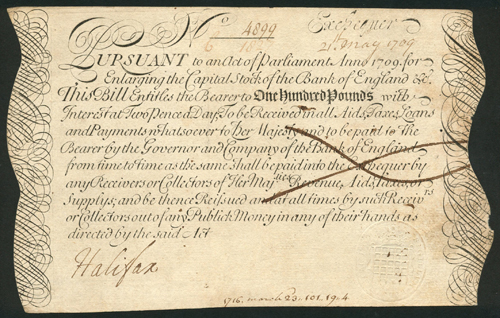 No 4899 Exchequer
6 21 May 1709
PURSUANT to an Act of Parliament Anno 1709 for
Enlarging the Capital Stock of the Bank of England &c.
This Bill Entitles the Bearer to One Hundred Pounds with
Interest at Two Pence a Day To be Received in all Aids, Taxes, Loans
and Payments whatsoever to Her Majesty and to be paid to the
Bearer by the Governor and Company of the Bank of England
from time to time as the same shall be paid into the Exchequer by
any Receivers or Collectors of Her Maj Revenue, Aids, Taxes, or
Supplys; and be thence Reissued and at all times by such Receivrs
or Collectors out of any Publick Money in any of their hands as
directed by the said Act
Halifax
1716. march 23. 101. 19. 4